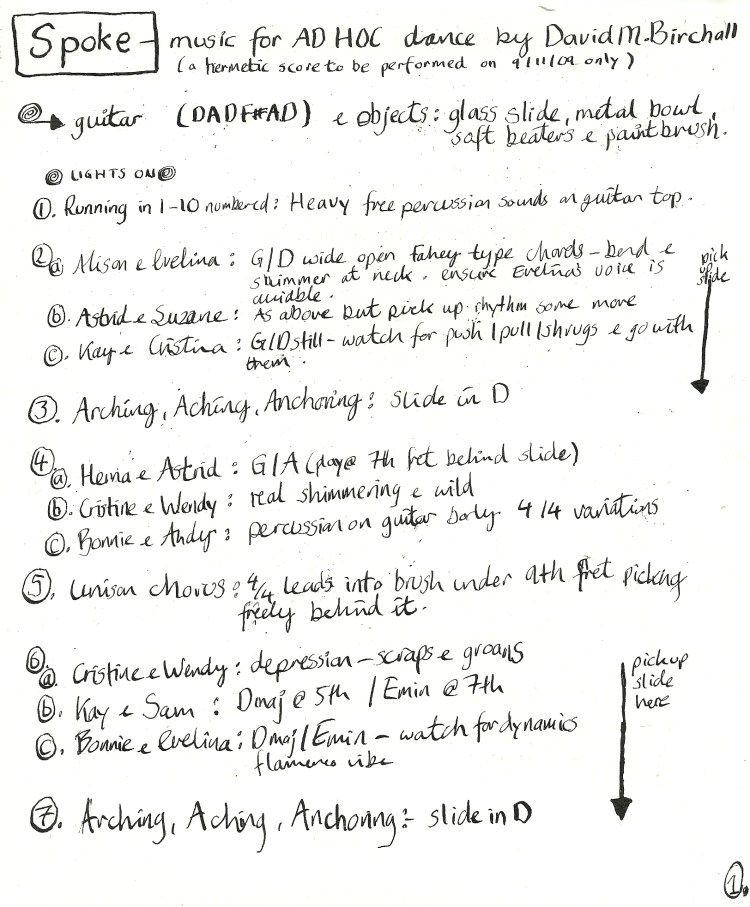 Spoke - music for AD HOC dance by David M. Birchall
(a hermetic score to be performed on 9/11/09 only)
guitar (DADF#AD) e objects: glass slide, metal bowl,
soft beaters e paintbrush.
LIGHTS ON
①. Running in 1-10 numbered: Heavy free percussion sounds on guitar top.
② ⓐ Alison e Evelina: G/D wide open Fahey type chords - bend e
shimmer at neck. ensure Evelina's voice is
audible.
pick
up
slide
ⓑ. Astrid e Suzane: As above but pick up rhythm some more
ⓒ. Kay e Cristina: G/D still - watch for push/pull/shrugs e go with
them.
③. Arching, Aching, Anchoring: slide in D
④ ⓐ. Henia e Astrid: G/A (play @ 7th fret behind slide)
ⓑ. Cristine e Wendy: real shimmering e wild
ⓒ. Bonnie e Andy: percussion on guitar body 4/4 variations
⑤. Unison chorus: 4/4 leads into brush under 9th fret picking
freely behind it.
⑥ ⓐ. Cristine e Wendy: depression - scraps e groans
ⓑ. Kay e Sam: Dmaj @ 5th / Emin @ 7th
ⓒ. Bonnie e Evelina: Dmaj/Emin - watch for dynamics
flamenco vibe
pickup
slide
here
⑦. Arching, Aching, Anchoring:- slide in D
①.